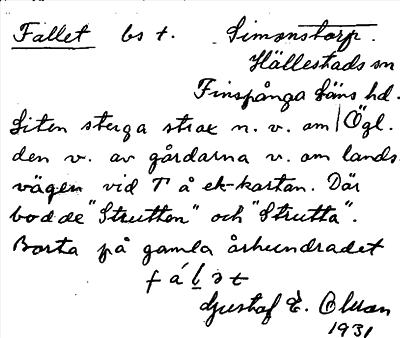 Fallet bs t. Simonstorp.
Hällestads sn
Finspånga läns hd.
Liten stuga strax n. v. om Ögl.
den v. av gårdarna v. om lands-
vägen vid T å ek-kartan. Där
bodde "Strutten" och "Strutta".
Borta på gamla århundradet
fál̠ət
Gustaf E. Olsson
1931